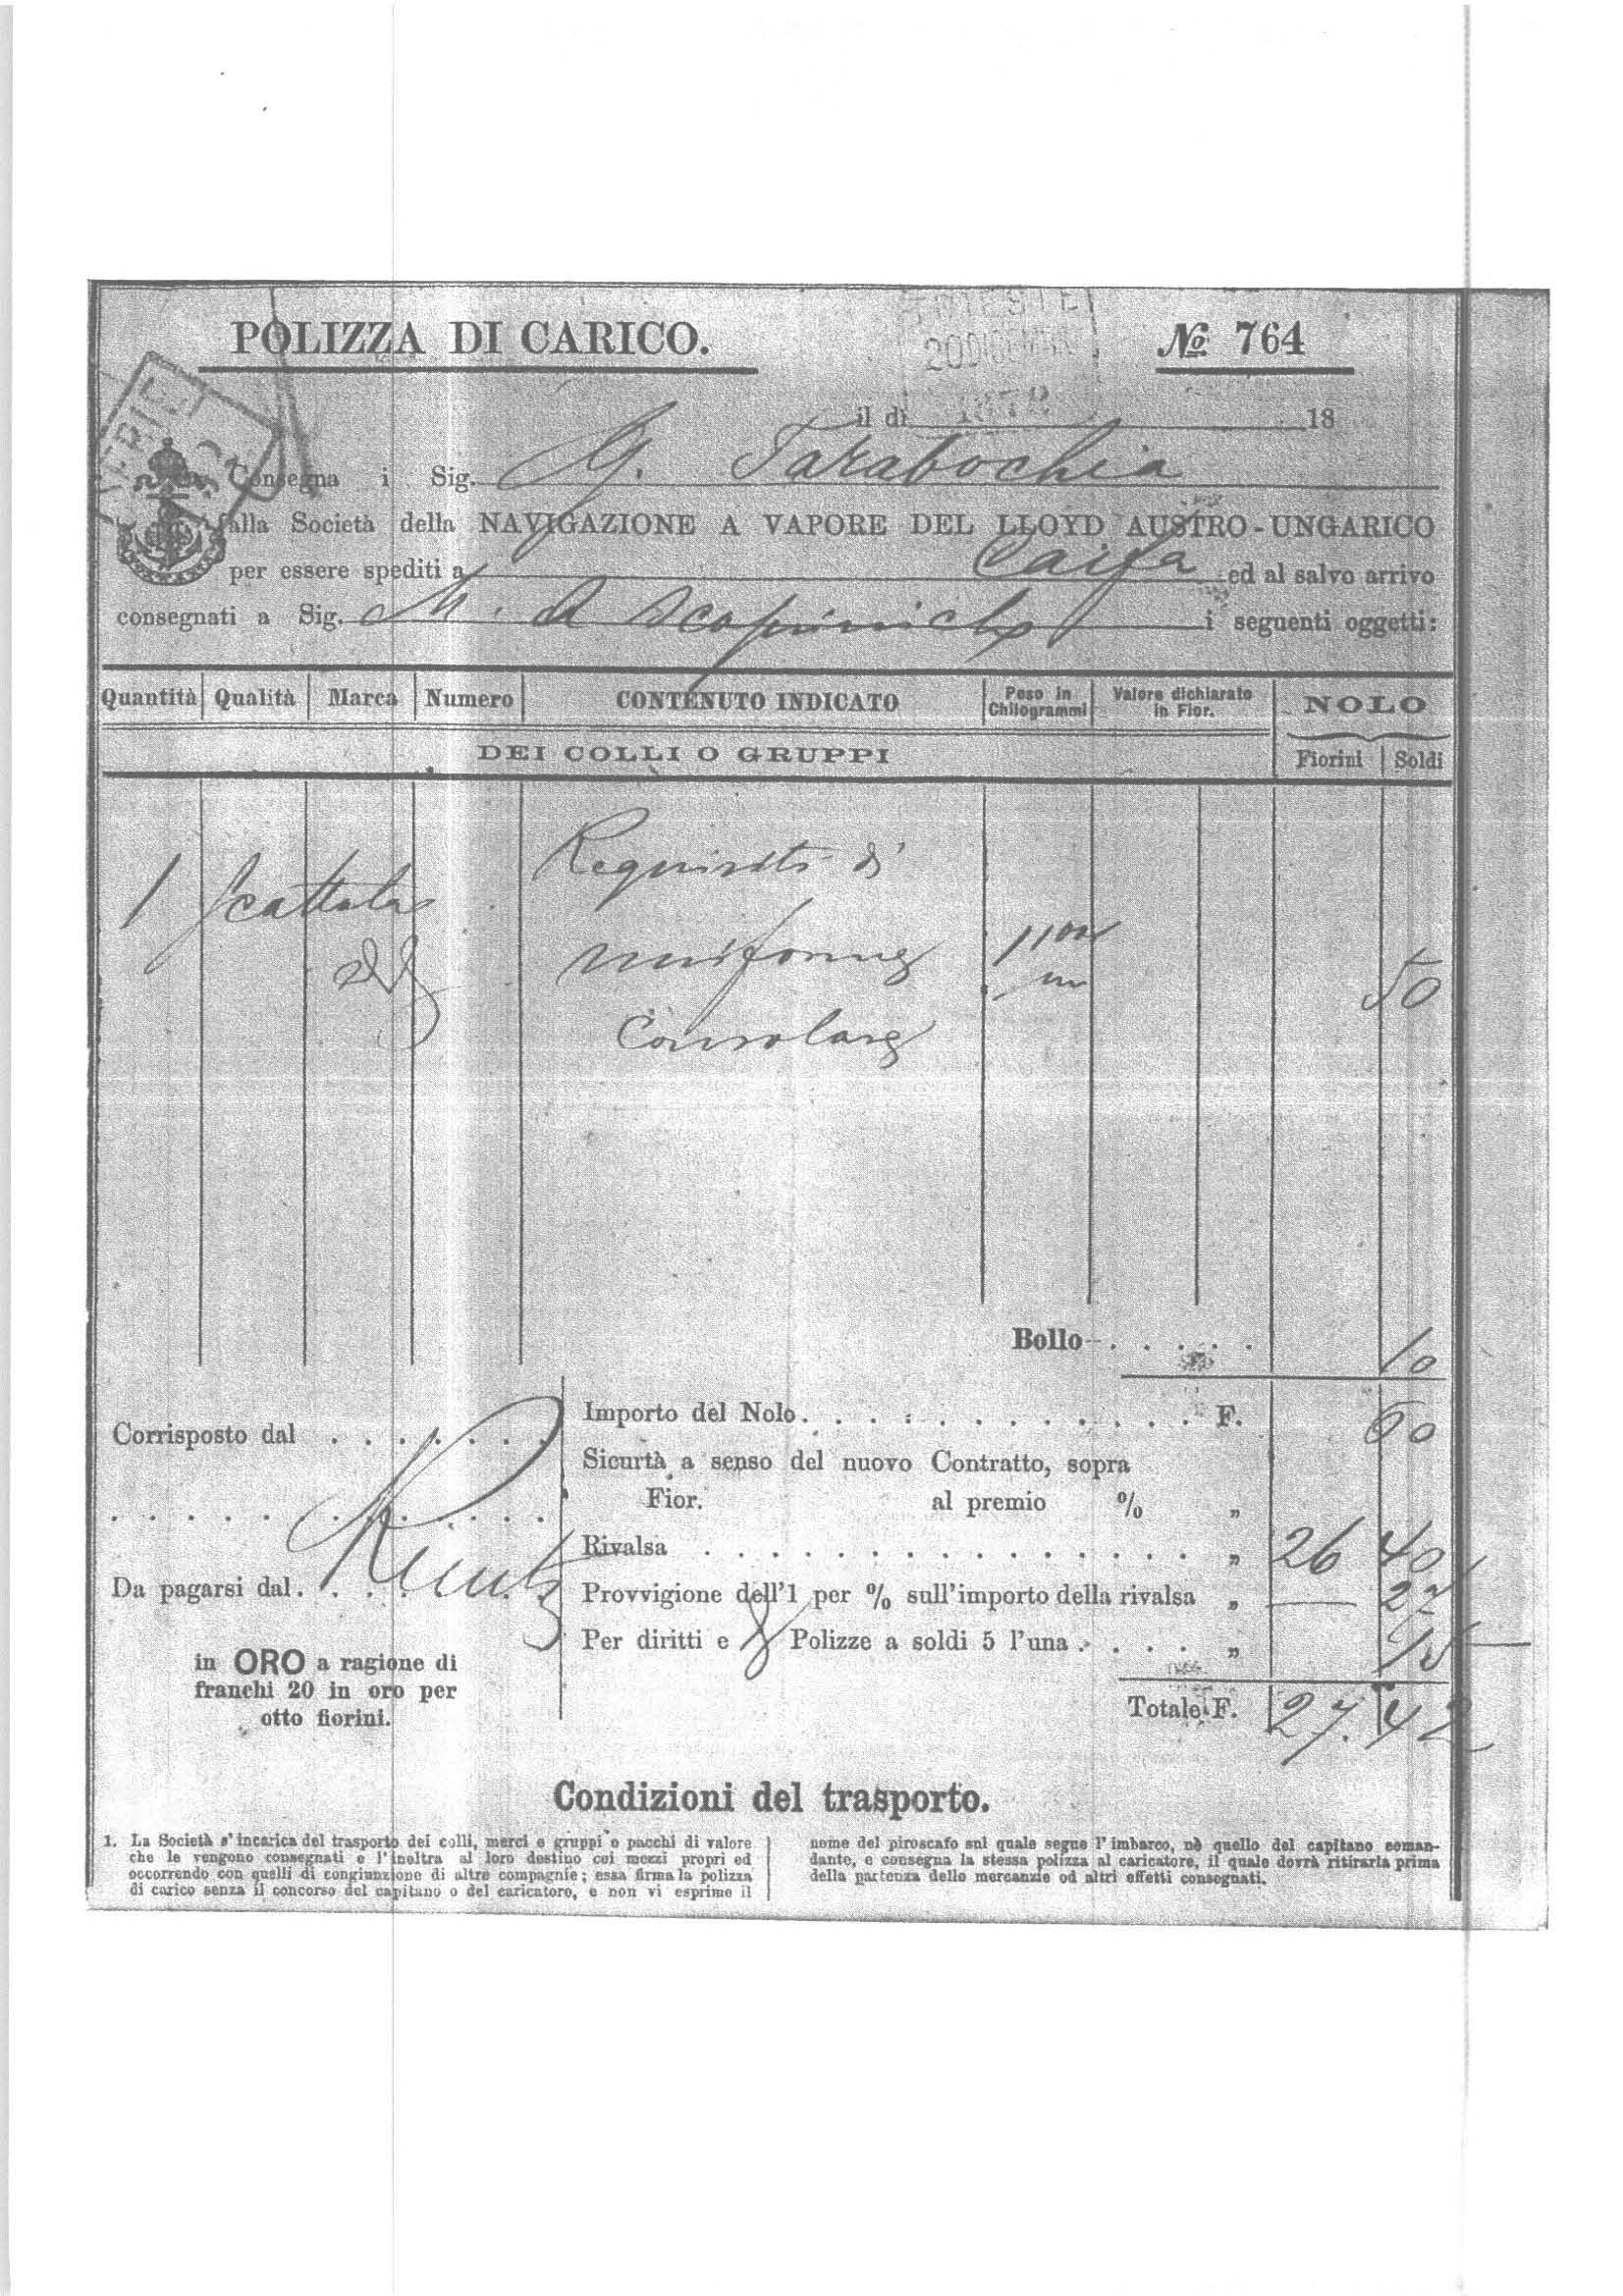 POLIZZA DI CARICO.
TRIESTE
№ 764
il di 1878 18
Consegna i Sig. G. Tarabochia
alla Società della NAVIGAZIONE A VAPORE DEL LLOYD AUSTRO-UNGARICO
per essere spediti a Caifa ed al salvo arrivo
consegnati a Sig. i seguenti oggetti:
Quantità Qualità Marca Numero CONTENUTO INDICATO Peso in Chilogrammi Valore dichiarato in Fior. NOLO
DEI COLLI O GRUPPI Fiorini Soldi
1 Scattola Requisiti di
uniforme
50
Consolare
Bollo 10
Importo del Nolo F. 60
Corrisposto dal
Sicurtà a senso del nuovo Contratto, sopra
Fior. al premio % „
Rivalsa „ 26 40
Da pagarsi dal
Provvigione dell'1 per % sull'importo della rivalsa „ — 27
Per diritti e Polizze a soldi 5 l'una „ 15
in ORO a ragione di
franchi 20 in oro per
otto fiorini.
Totale F. 27.42
Condizioni del trasporto.
1. La Società s'incarica del trasporto dei colli, merci e gruppi o pacchi di valore
che le vengono consegnati e l'inoltra al loro destino coi mezzi propri ed
occorrendo con quelli di congiunzione di altre compagnie; essa firma la polizza
di carico senza il concorso del capitano o del caricatore, e non vi esprime il
nome del piroscafo sul quale segue l'imbarco, nè quello del capitano coman-
dante, e consegna la stessa polizza al caricatore, il quale dovrà ritirarla prima
della partenza delle mercanzie od altri effetti consegnati.